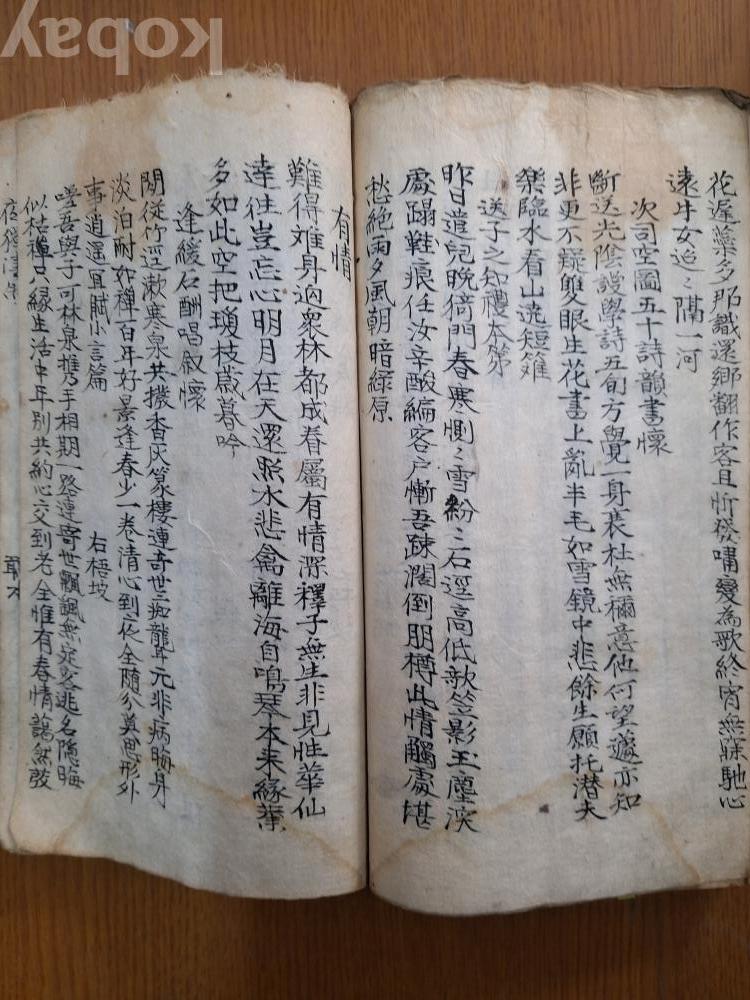 花遲藥多那識還鄉翻作客且忻發嘯變為歌終宵無寐馳心
遠牛女迢〻隔一河
次司空圖五十詩韻書懷
斷送光陰謾學詩五旬方覺一身衰杜無禰意他何望蘧亦知
非更不疑雙眼生花書上亂半毛如雪鏡中悲餘生願托潜夫
樂臨水看山逃短籬
送子之知禮本第
昨日遣兒晚猗門春寒惻〻雪紛〻石逕高低欹笠影玉塵深
處蹋鞋痕任汝辛酸編客戶慚吾踈濶倒朋樽此情觸處堪
愁絶雨夕風朝暗綠原
有情
難得难身逈衆林都成眷屬有情深釋子無生非見性華仙
達徃豈忘心明月在天還照水悲禽離海自鳴琴本来緣業
多如此空把瓊枝歲暮吟
逢緩石酬唱叙懷
閒從竹逕漱寒泉共撥香灰篆樓連寄世痴聾元非病晦身
淡泊耐如禪百年好景逢春少一卷清心到夜全随分莫思形外
事逍遥宜賦小言篇
右梧坡
嗟吾與子可林泉携手相期一路連寄世飄颻無定客逃名隐晦
似枯禪只緣生活中年別共約心交到老全惟有春情藹然
kobay